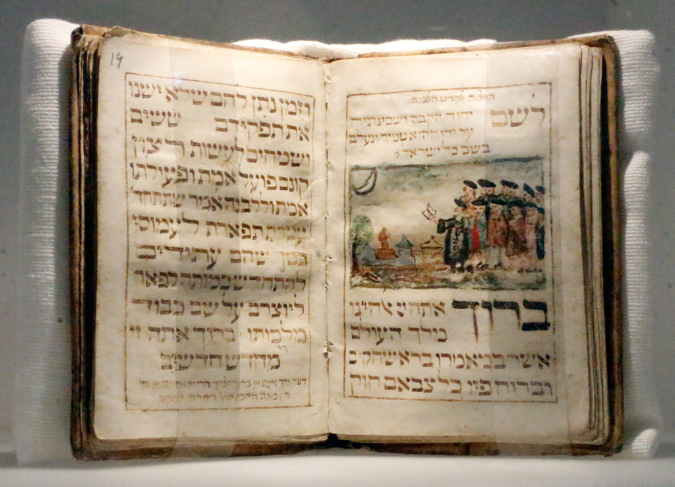 לשם יחוד הקבה ושכינתיה
על ידי ההוא טמיר ונעלם
בשם כל ישראל
ברוך אתה יי אלהינו
מלך העולם
אשר במאמרו ברא שחקים
וברוח פיו כל צבאם חוק
19
וזמן נתן להם שלא ישנו
את תפקידם ששים
ושמחים לעשות רצון
קונם פועל אמת ופעולתו
אמת וללבנה אמר שתתחד
עטרת תפארת לעמוסי
בטן שהם עתידים
להתחדש כמותה לפאר
ליוצרם על שם כבוד
מלכותו ברוך אתה יי
מחדש חדשים